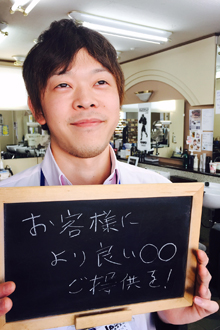 お客様に
より良い○○
ご提供を!